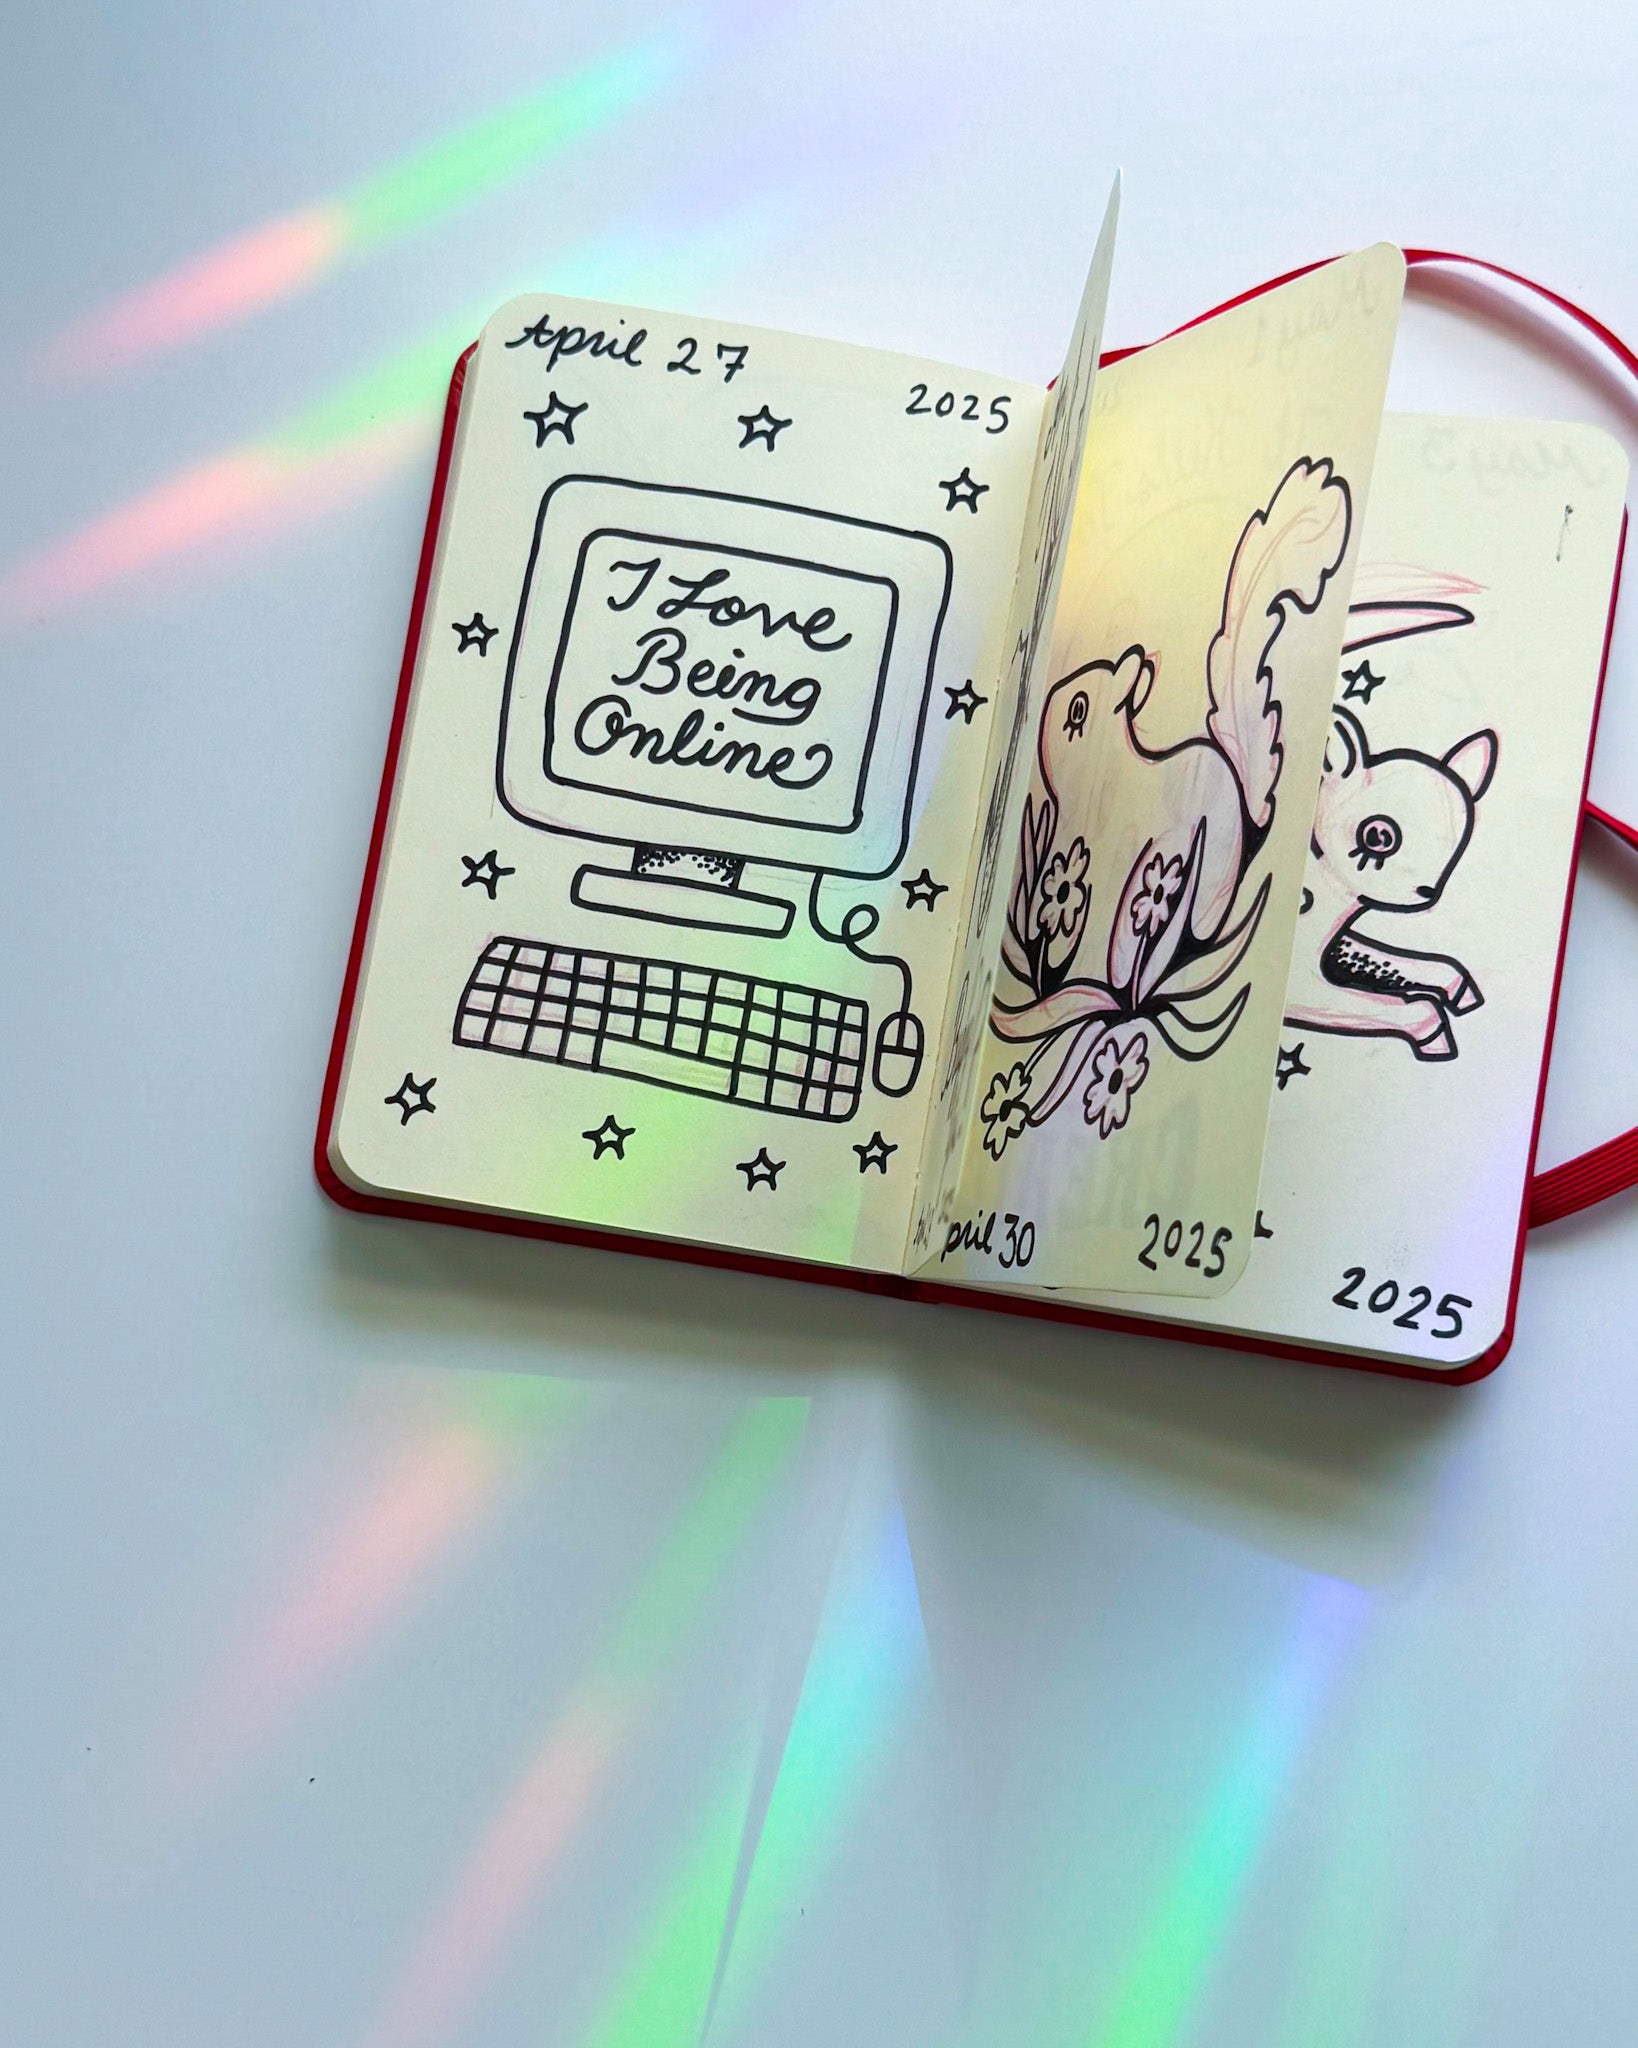 April 27
2025
I Love
Being
Online
pril 30
2025
2025
May 3